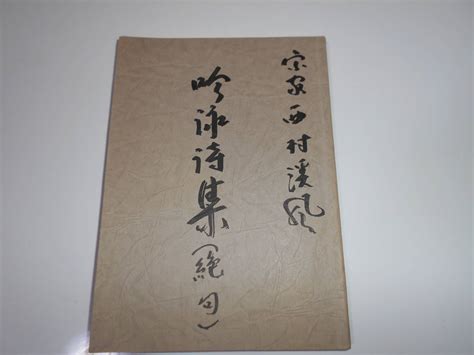 宗家西村渓風
吟詠詩集(絶句)